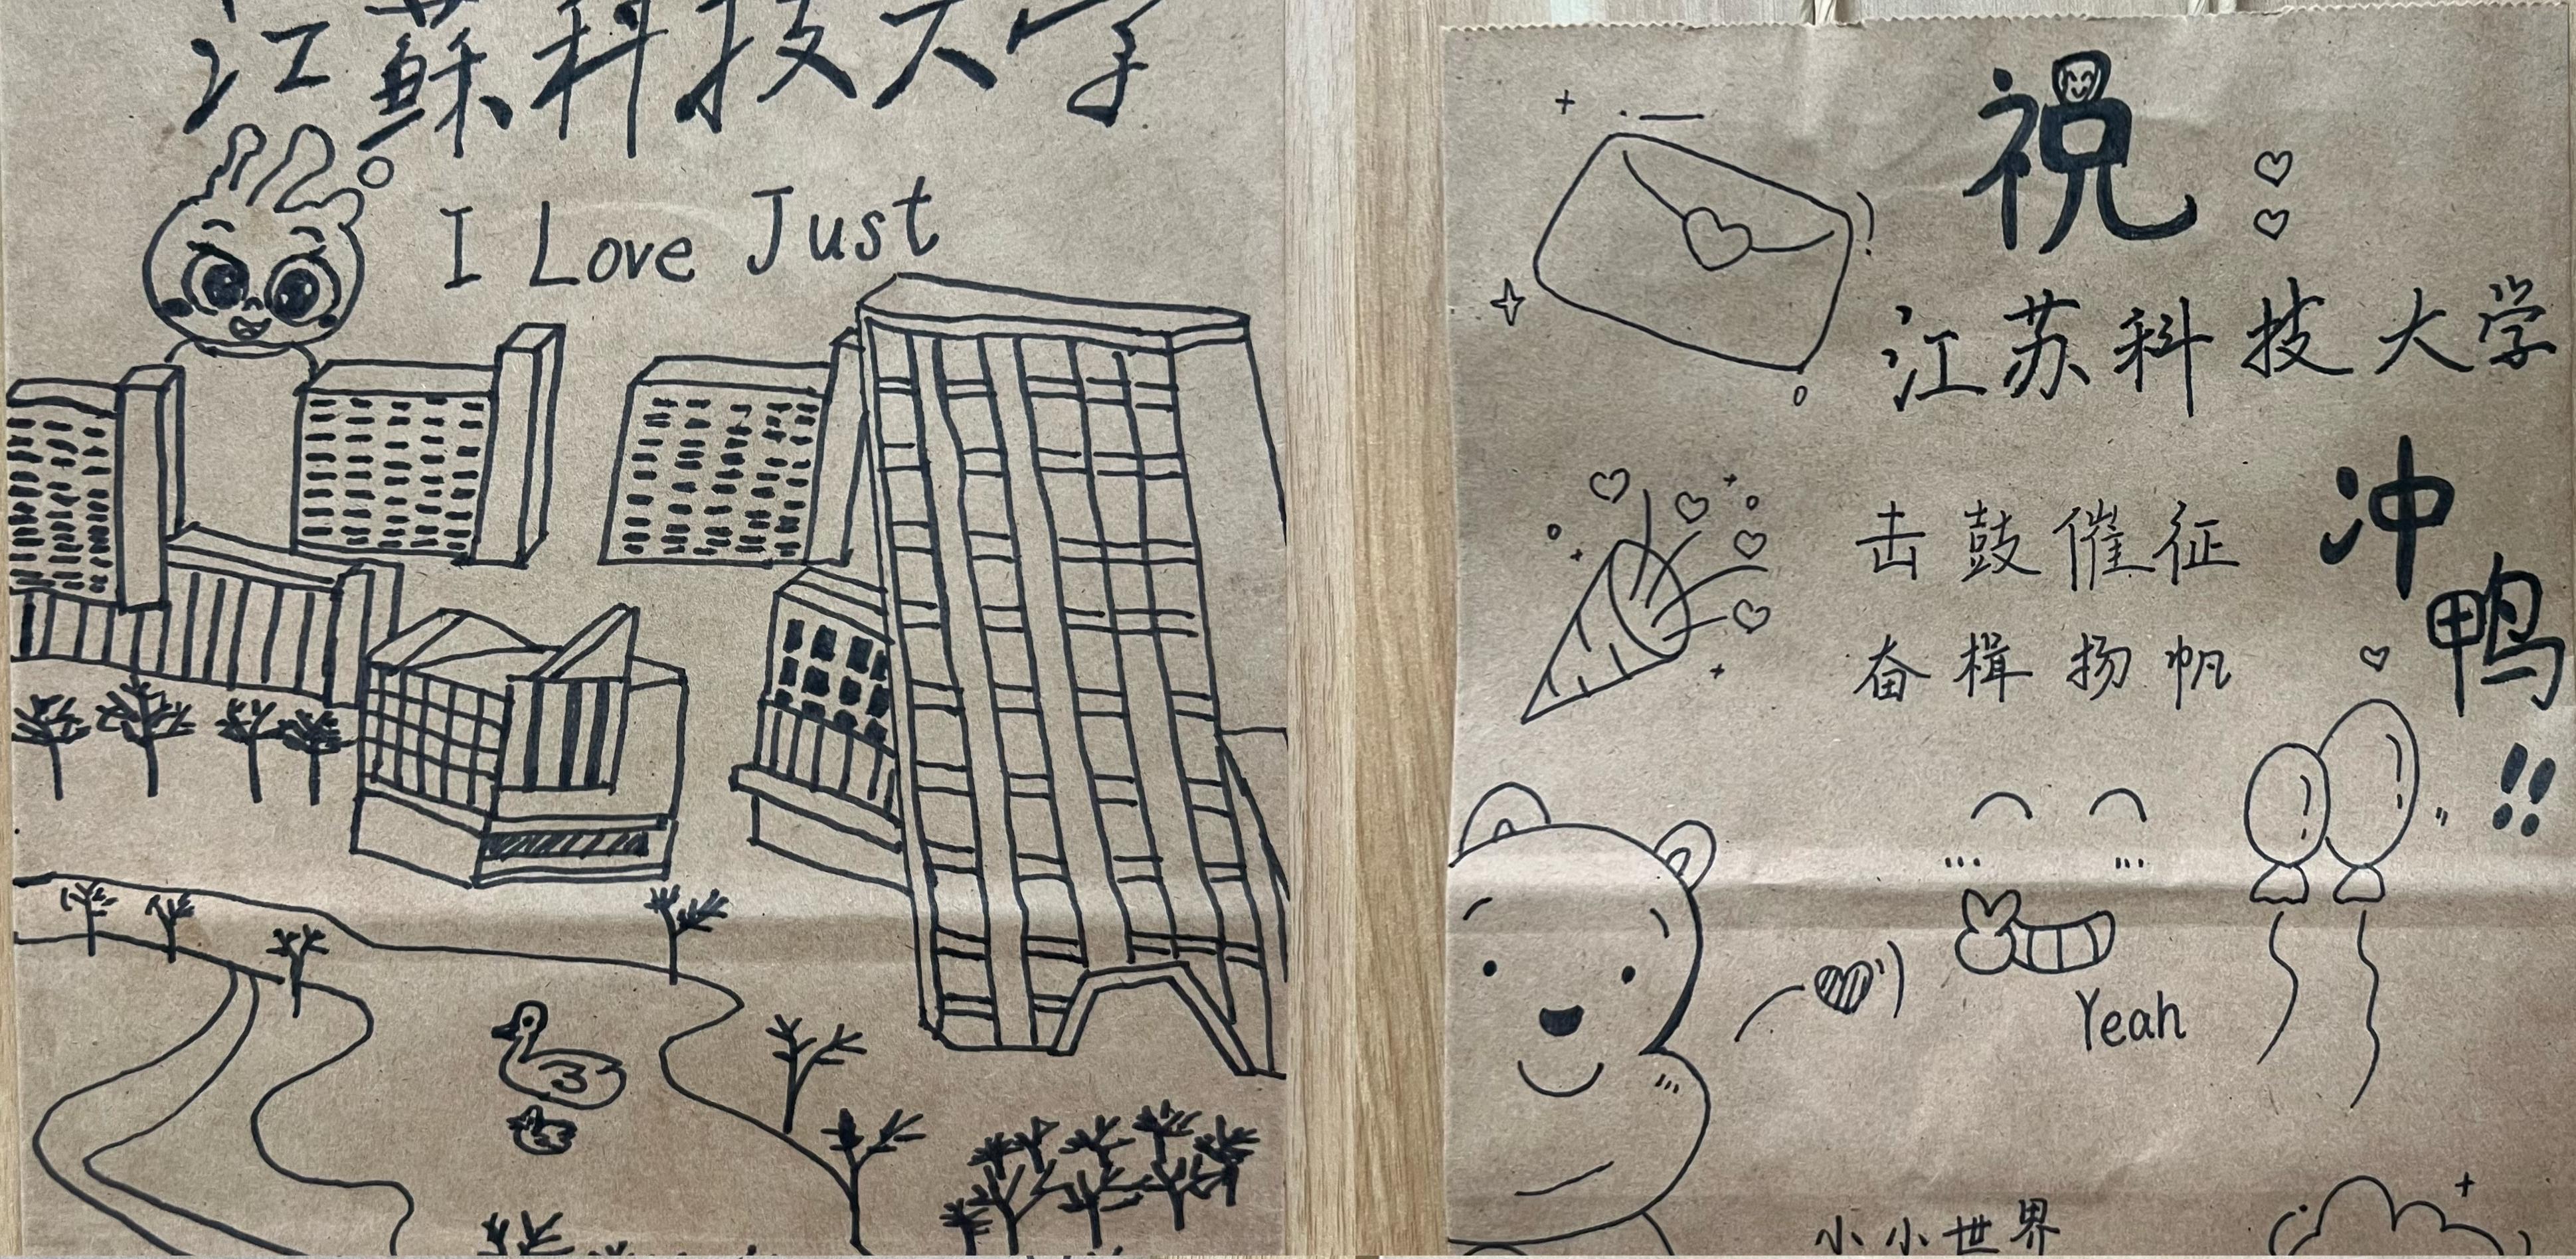 江蘇科技大学
I Love Just
祝
江苏科技大学
击鼓催征
奋楫扬帆
冲鸭!!
Yeah
小小世界